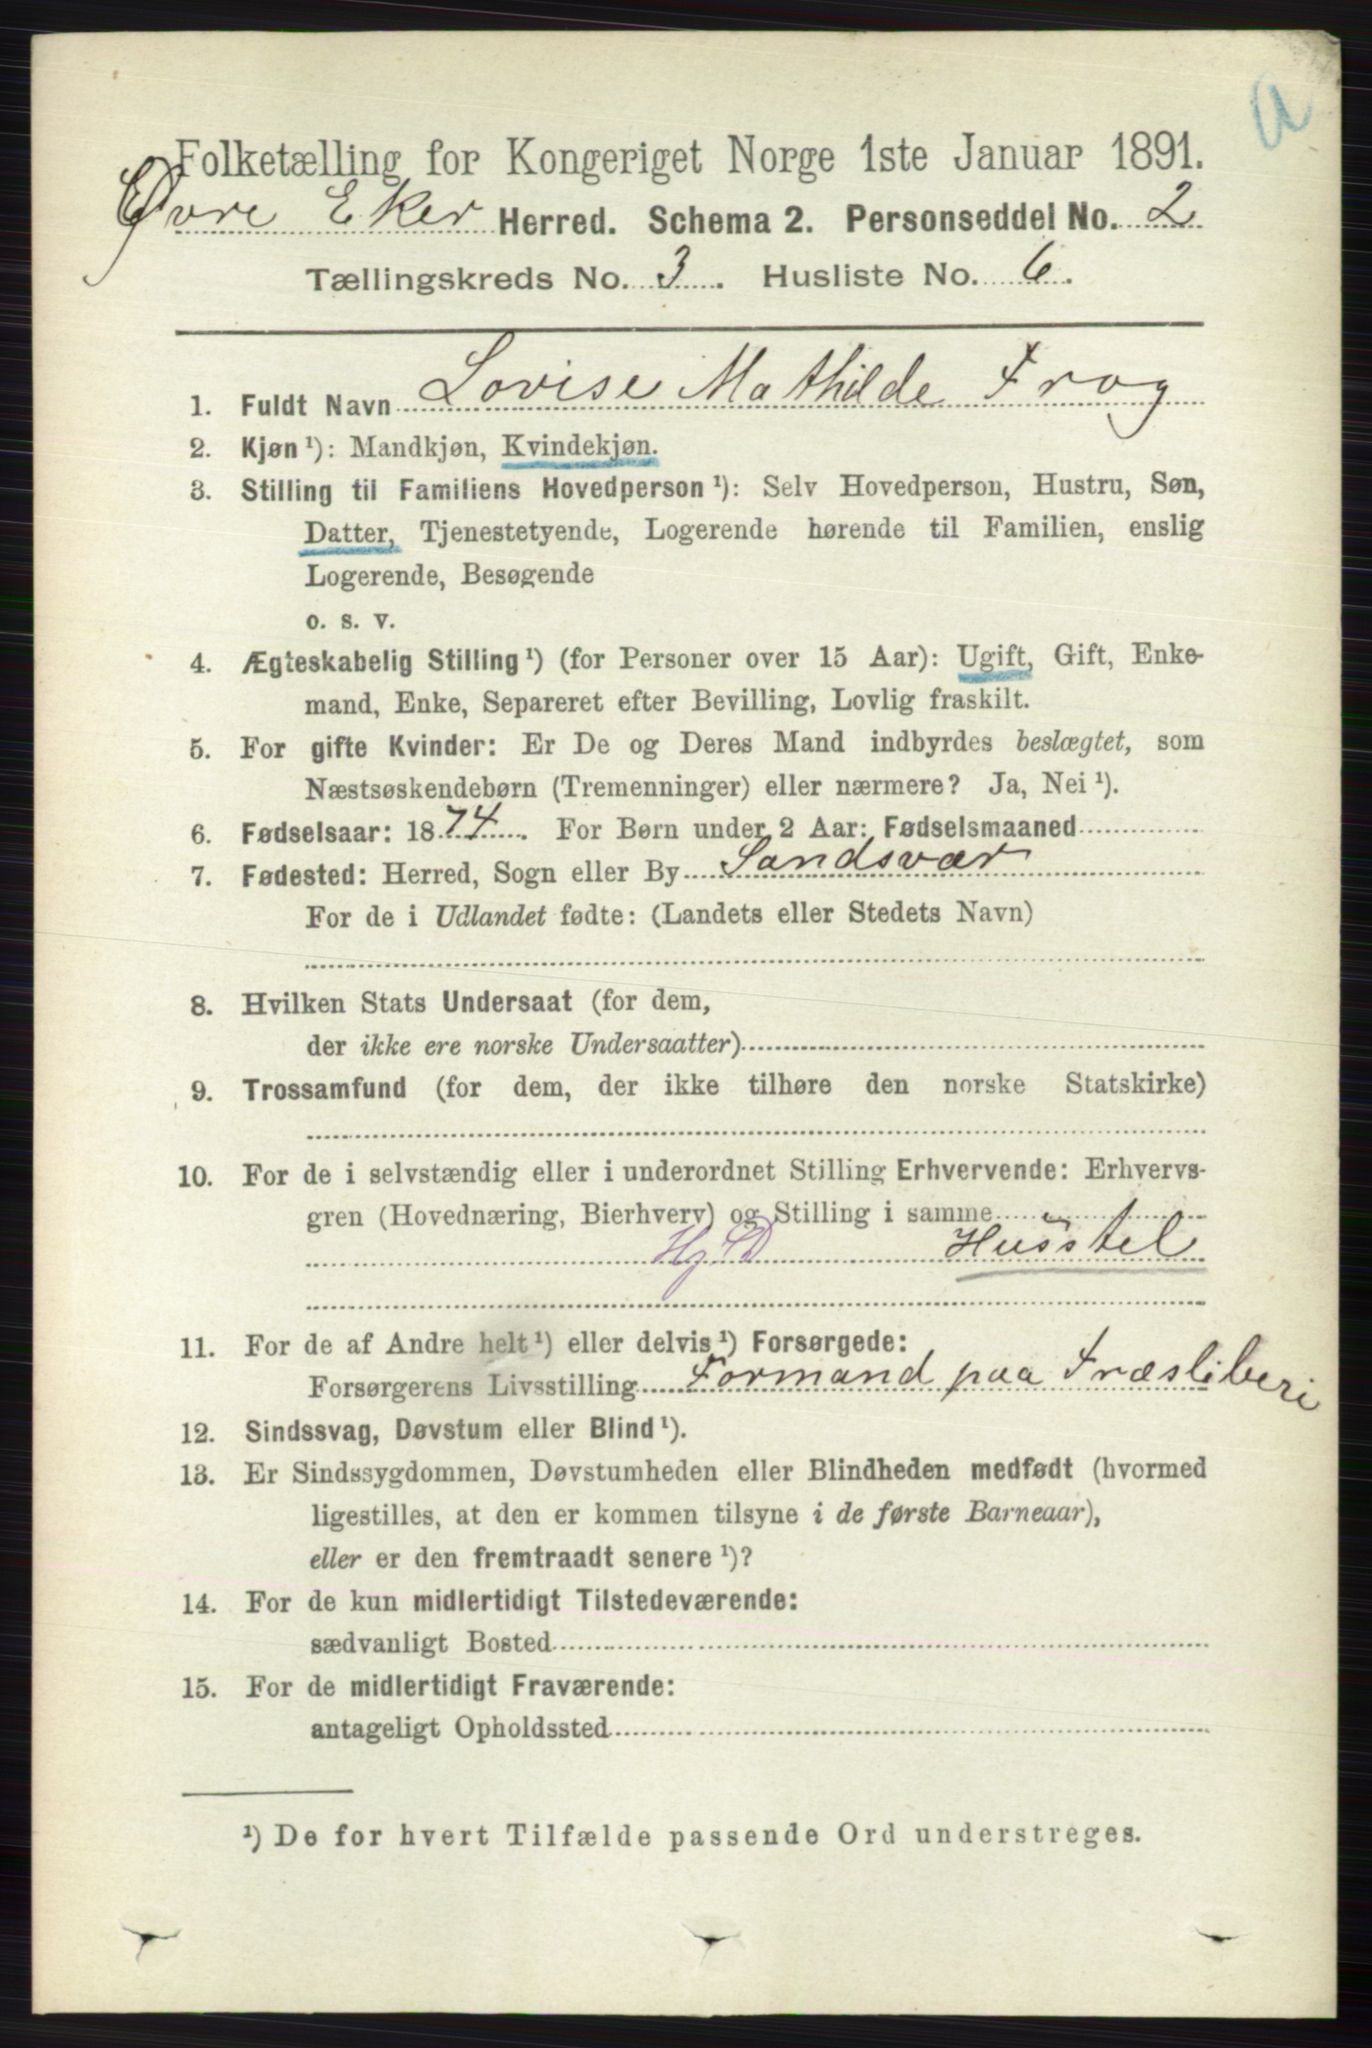 a
Folketælling for Kongeriget Norge 1ste Januar 1891.
Øvre Eker Herred. Schema 2. Personseddel No. 2
Tællingskreds No. 3. Husliste No. 6.
1. Fuldt Navn Lovise Mathilde Frog
2. Kjøn ¹): Mandkjøn, Kvindekjøn.
3. Stilling til Familiens Hovedperson ¹): Selv Hovedperson, Hustru, Søn,
Datter, Tjenestetyende, Logerende hørende til Familien, enslig
Logerende, Besøgende
o. s. v.
4. Ægteskabelig Stilling ¹) (for Personer over 15 Aar): Ugift, Gift, Enke-
mand, Enke, Separeret efter Bevilling, Lovlig fraskilt.
5. For gifte Kvinder: Er De og Deres Mand indbyrdes beslægtet, som
Næstsøskendebørn (Tremenninger) eller nærmere? Ja, Nei ¹).
6. Fødselsaar: 1874. For Børn under 2 Aar: Fødselsmaaned
7. Fødested: Herred, Sogn eller By Sandsvær
For de i Udlandet fødte: (Landets eller Stedets Navn)
8. Hvilken Stats Undersaat (for dem,
der ikke ere norske Undersaatter)
9. Trossamfund (for dem, der ikke tilhøre den norske Statskirke)
10. For de i selvstændig eller i underordnet Stilling Erhvervende: Erhvervs-
gren (Hovednæring, Bierhverv) og Stilling i samme
HjD Husstel
11. For de af Andre helt ¹) eller delvis ¹) Forsørgede:
Forsørgerens Livsstilling Formand paa Træsliberi
12. Sindssvag, Døvstum eller Blind ¹).
13. Er Sindssygdommen, Døvstumheden eller Blindheden medfødt (hvormed
ligestilles, at den er kommen tilsyne i de første Barneaar),
eller er den fremtraadt senere ¹)?
14. For de kun midlertidigt Tilstedeværende:
sædvanligt Bosted
15. For de midlertidigt Fraværende:
antageligt Opholdssted
¹) De for hvert Tilfælde passende Ord understreges.